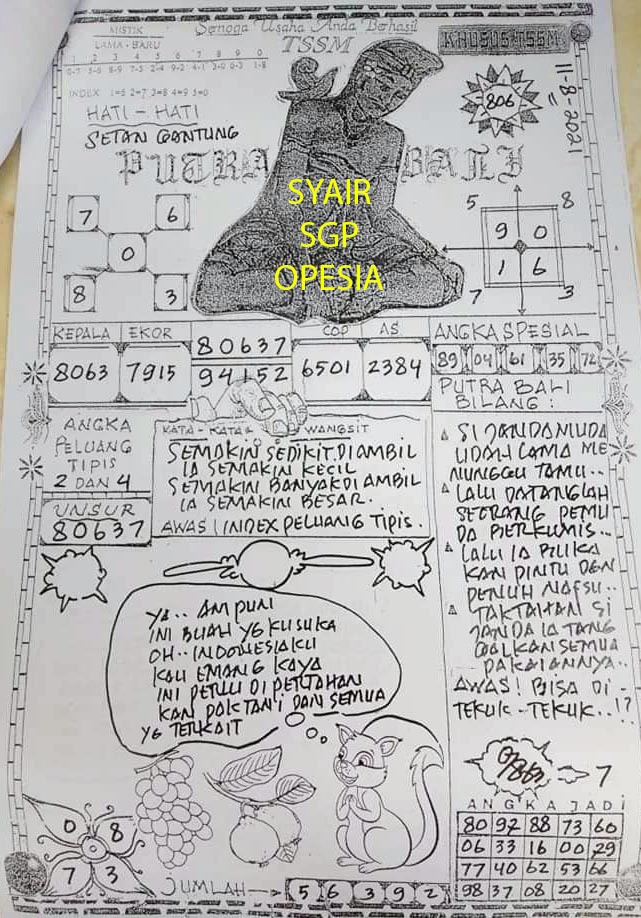 MISTIK
LAMA - BARU
1 2 3 4 5 6 7 8 9 0
INDEX 1=6 2=7 3=8 4=9 5=0
Semoga Usaha Anda Berhasil
TSSM
KHUSUS TSSM
11-8-2021
806
HATI - HATI
SETAN GANTUNG
PUTRA BALI
SYAIR
SGP
OPESIA
7 6
0
8 3
5 8
9 0
1 6
7 3
KEPALA EKOR
8063 7915
80637
94152
COP AS
6501 2384
ANGKA SPESIAL
89 04 61 35 72
ANGKA
PELUANG
TIPIS
2 DAN 4
UNSUR
80637
KATA - KATA WANGSIT
SEMAKIN SEDIKIT DIAMBIL
IA SEMAKIN KECIL
SEMAKIN BANYAK DIAMBIL
IA SEMAKIN BESAR.
AWAS ! INDEX PELUANG TIPIS.
PUTRA BALI
BILANG :
SI JANDA MUDA
UDAH LAMA ME
NUNGGU TAMU..
LALU DATANGLAH
SEORANG PEMU
DA BERKUMIS...
LALU IA BUKA
KAN PINTU DEN
PENUH NAFSU..
TAKTAHAN SI
JANDA IA TANG
GALKAN SEMUA
PAKAIANNYA..
AWAS! BISA DI -
TEKUK - TEKUK..!?
YA.. AMPUN
INI BUAH YG KUSUKA
OH.. INDONESIAKU
KAU EMANG KAYA
INI PERLU DI PERTAHAN
KAN PAK TANI DAN SEMUA
YG TERKAIT
7
ANGKA JADI
80 92 88 73 60
06 33 16 00 29
77 40 62 53 66
98 37 08 20 27
0 8
7 3
JUMLAH 5 6 3 9 2